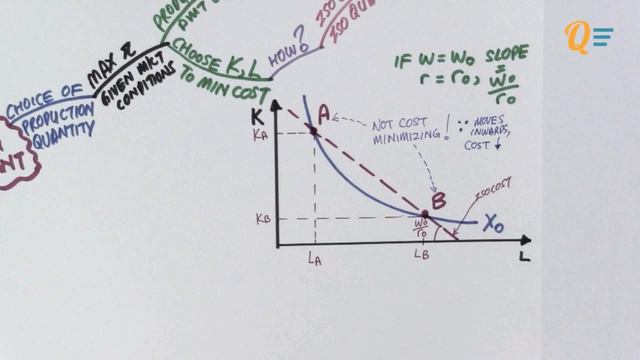 CHOICE OF
PRODUCTION
QUANTITY
MAX π
GIVEN MKT
CONDITIONS
CHOOSE K,L
TO MIN COST
HOW?
IF W=W₀ SLOPE
r=r₀, =
W₀
r₀
QE
K
A
KA
NOT COST
MINIMIZING!
∵ MOVES
INWARDS,
COST ↓
B
ISOCOST
KB
W₀
r₀
X₀
LA
LB
L